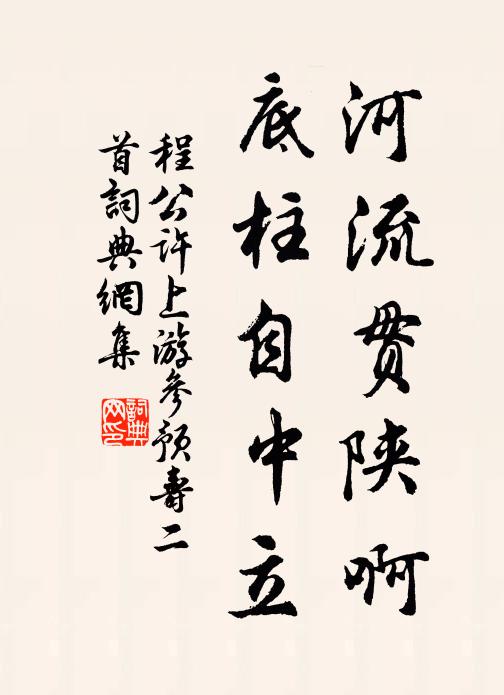 河流贯陕啊
底柱自中立
程公许上游参预寿二
首词典网集
詞典网印